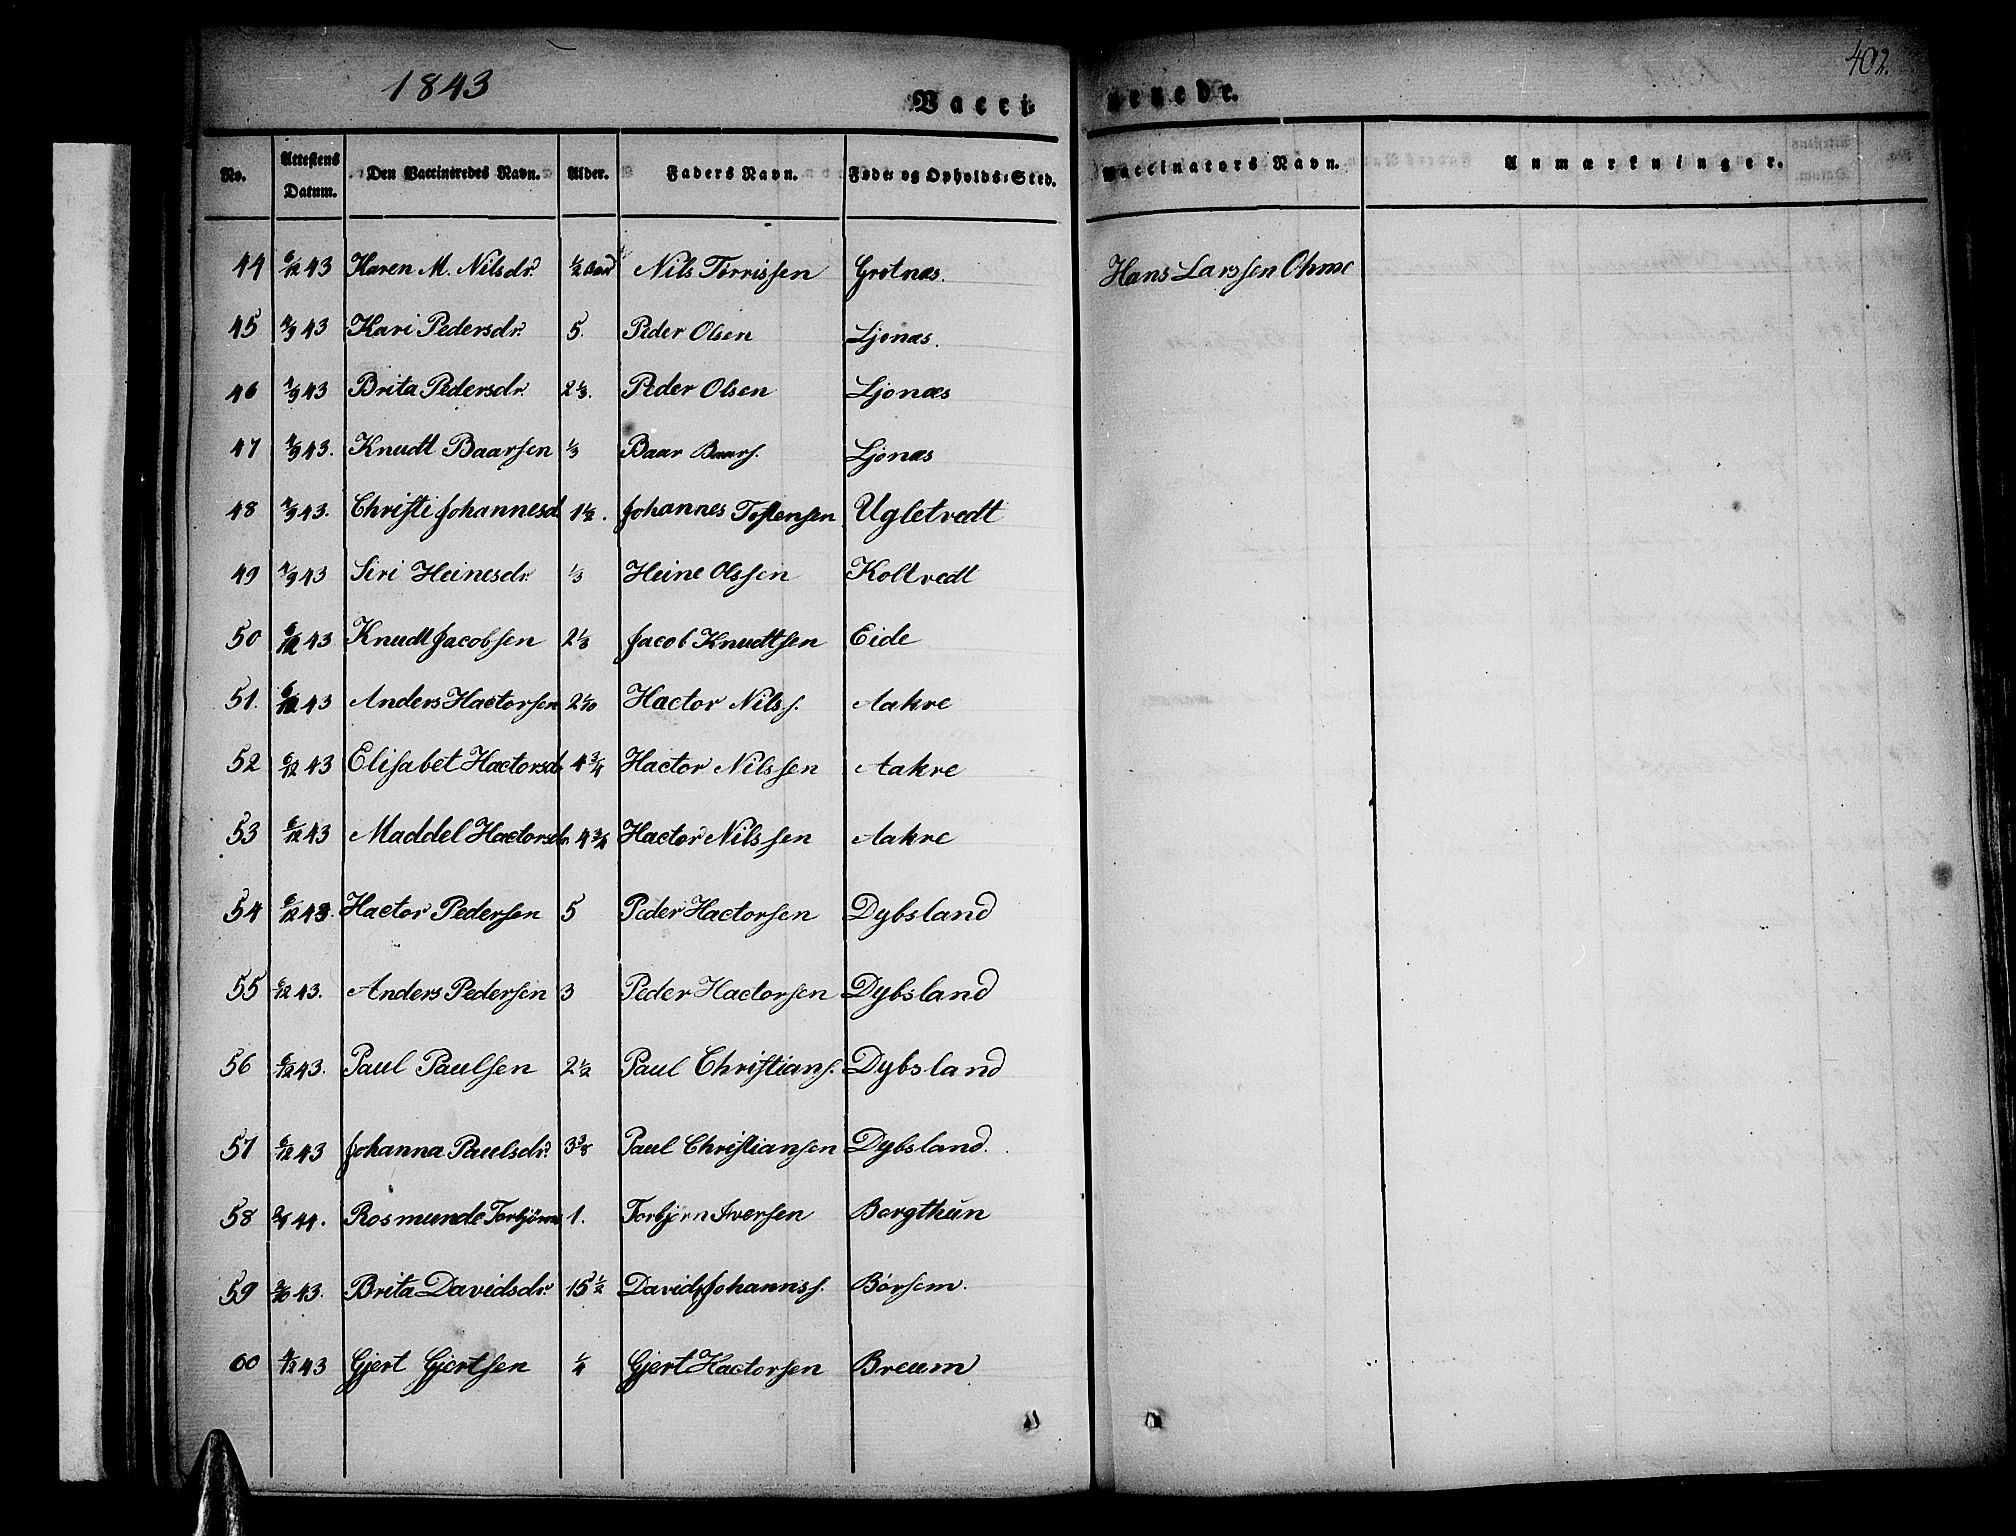 1843
402.
Vaccinerede.
No. | Attestens Datum. | Den Vaccineredes Navn. | Alder. | Faders Navn. | Føde- og Opholds-Sted. | Vaccinators Navn. | Anmærkninger.
44 | 6/12 43 | Karen M. Nilsdr. | 1/2 Aar | Nils Tørrissen | Grotnæs. | Hans Larssen Ohme
45 | 4/9 43 | Kari Pedersdr. | 5. | Peder Olsen | Ljonæs.
46 | 4/9 43 | Brita Pedersdr. | 2 1/3. | Peder Olsen | Ljonæs
47 | 4/9 43. | Knudt Baarsen | 1/3 | Baar Baars. | Ljonæs
48 | 4/9 43. | Christi Johannesd | 1 1/2. | Johannes Tostensen | Ugletvedt
49 | 4/9 43 | Siri Heinesdr. | 1/3 | Heine Olssen | Koltvedt
50 | 6/12 43 | Knudt Jacobsen | 2 1/3 | Jacob Knudtsen | Eide
51. | 6/12 43 | Anders Hactorsen | 2 1/10 | Hactor Nilss. | Aakre
52 | 6/12 43 | Elisabet Hactorsdr | 4 3/4 | Hactor Nilssen | Aakre
53 | 6/12 43 | Maddel Hactorsdr. | 4 3/4 | Hactor Nilssen | Aakre
54 | 6/12 43. | Hactor Pedersen | 5 | Peder Hactorsen | Dybsland
55 | 6/12 43. | Anders Pedersen | 3 | Peder Hactorsen | Dybsland
56 | 6/12 43. | Paul Paulsen | 2 1/2 | Paul Christians. | Dybsland
57 | 6/12 43 | Johanna Paulsdr. | 3 3/8 | Paul Christiansen | Dybsland.
58 | 44. | Rosmunde Torbjørns | 1. | Torbjørn Iversen | Borgthun
59 | 43. | Brita Davidsdr. | 15 1/2 | David Johanns. | Børsem.
60 | 4/12 43 | Gjert Gjertsen | 1/4 | Gjert Hactorsen | Breum